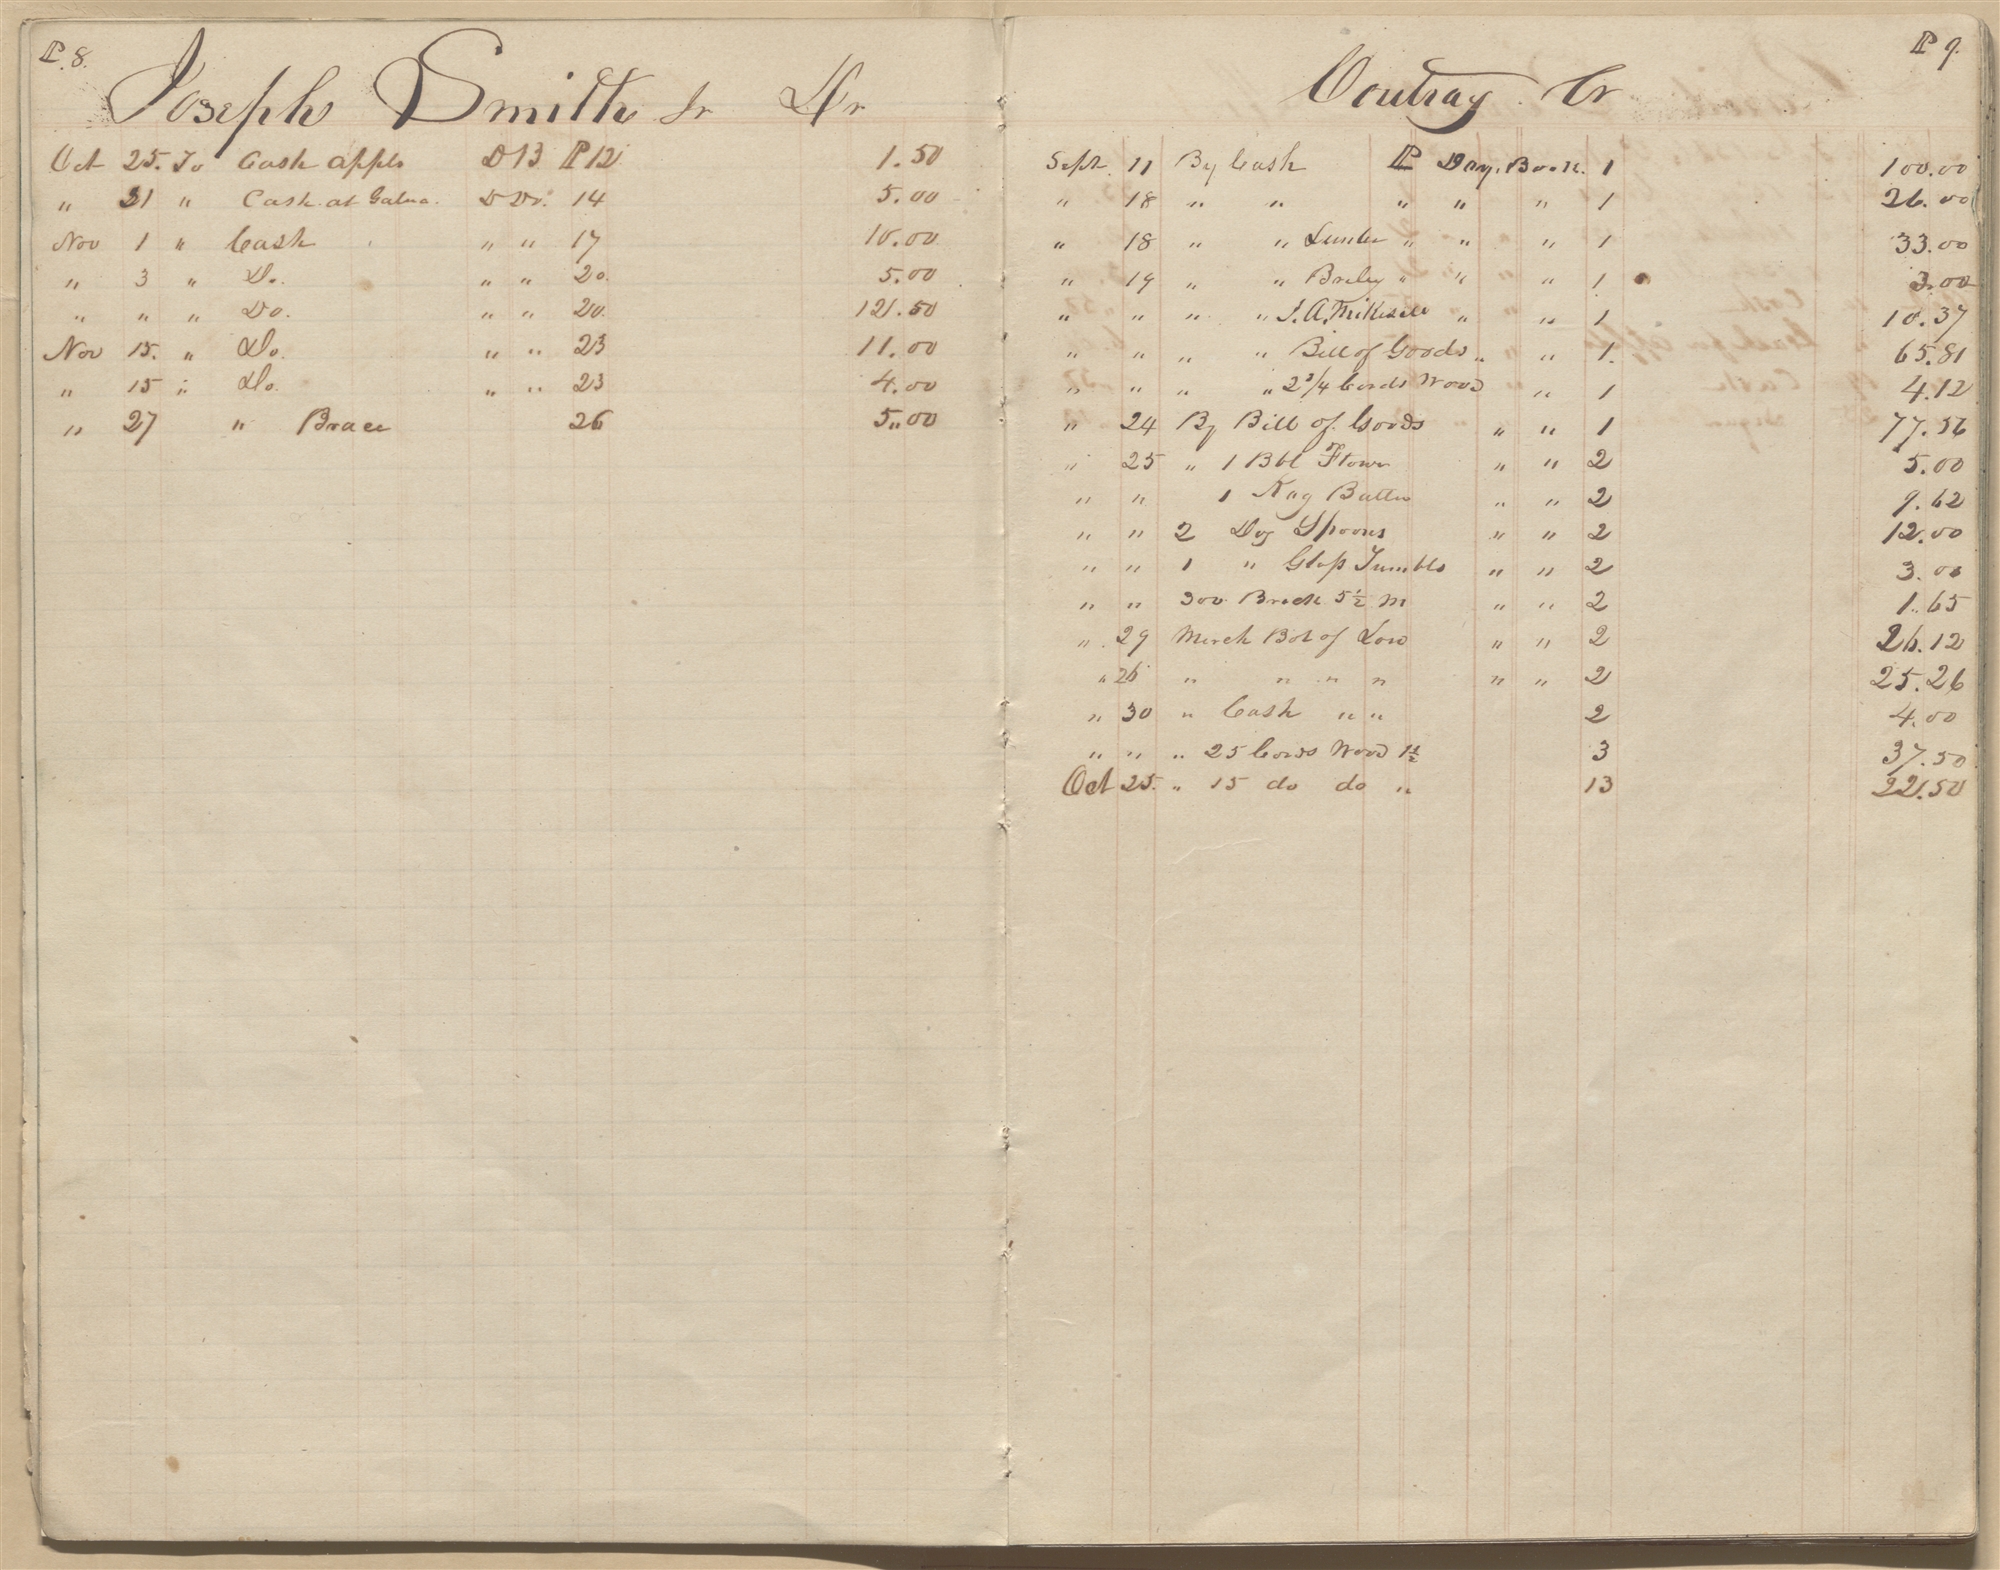 P. 8.
Joseph Smith Jr Dr
Oct 25. To Cash apples D 13 P 12 1.50
" 31 " Cash at Galena. D Do. 14 5.00
Nov 1 " Cash " " 17 10.00
" 3 " Do. " " 20. 5.00
" " " Do. " " 20. 121.50
Nov 15. " Do. " " 23 11.00
" 15 " Do. " " 23 4.00
" 27 " Brace 26 5.00
P 9.
Contray. Cr
Sept. 11 By Cash P Day. Book. 1 100.00
" 18 " " " " " 1 26.00
" 18 " " Lumber " " " 1 33.00
" 19 " " " " " 1 3.00
" " " " J. A. Mikesell " " 1 10.37
" " " " Bill of Goods " " 1. 65.81
" " " " 2 3/4 Cords Wood " 1 4.12
" 24 By Bill of Goods " " 1 77.56
" 25 " 1 Bbl Flour " " 2 5.00
" " 1 Kag Butter " " 2 9.62
" " 2 Doz Spoons " " 2 12.00
" " 1 " Glass Tumbls " " 2 3.00
" " 300 Brick 5 1/2 M " " 2 1.65
" 29 Merch Bot of Law " " 2 26.12
" 26 " " " " " " 2 25.26
" 30 " Cash " " 2 4.00
" " " 25 Cords Wood 1 1/2 3 37.50
Oct 25. " 15 do do " 13 22.50